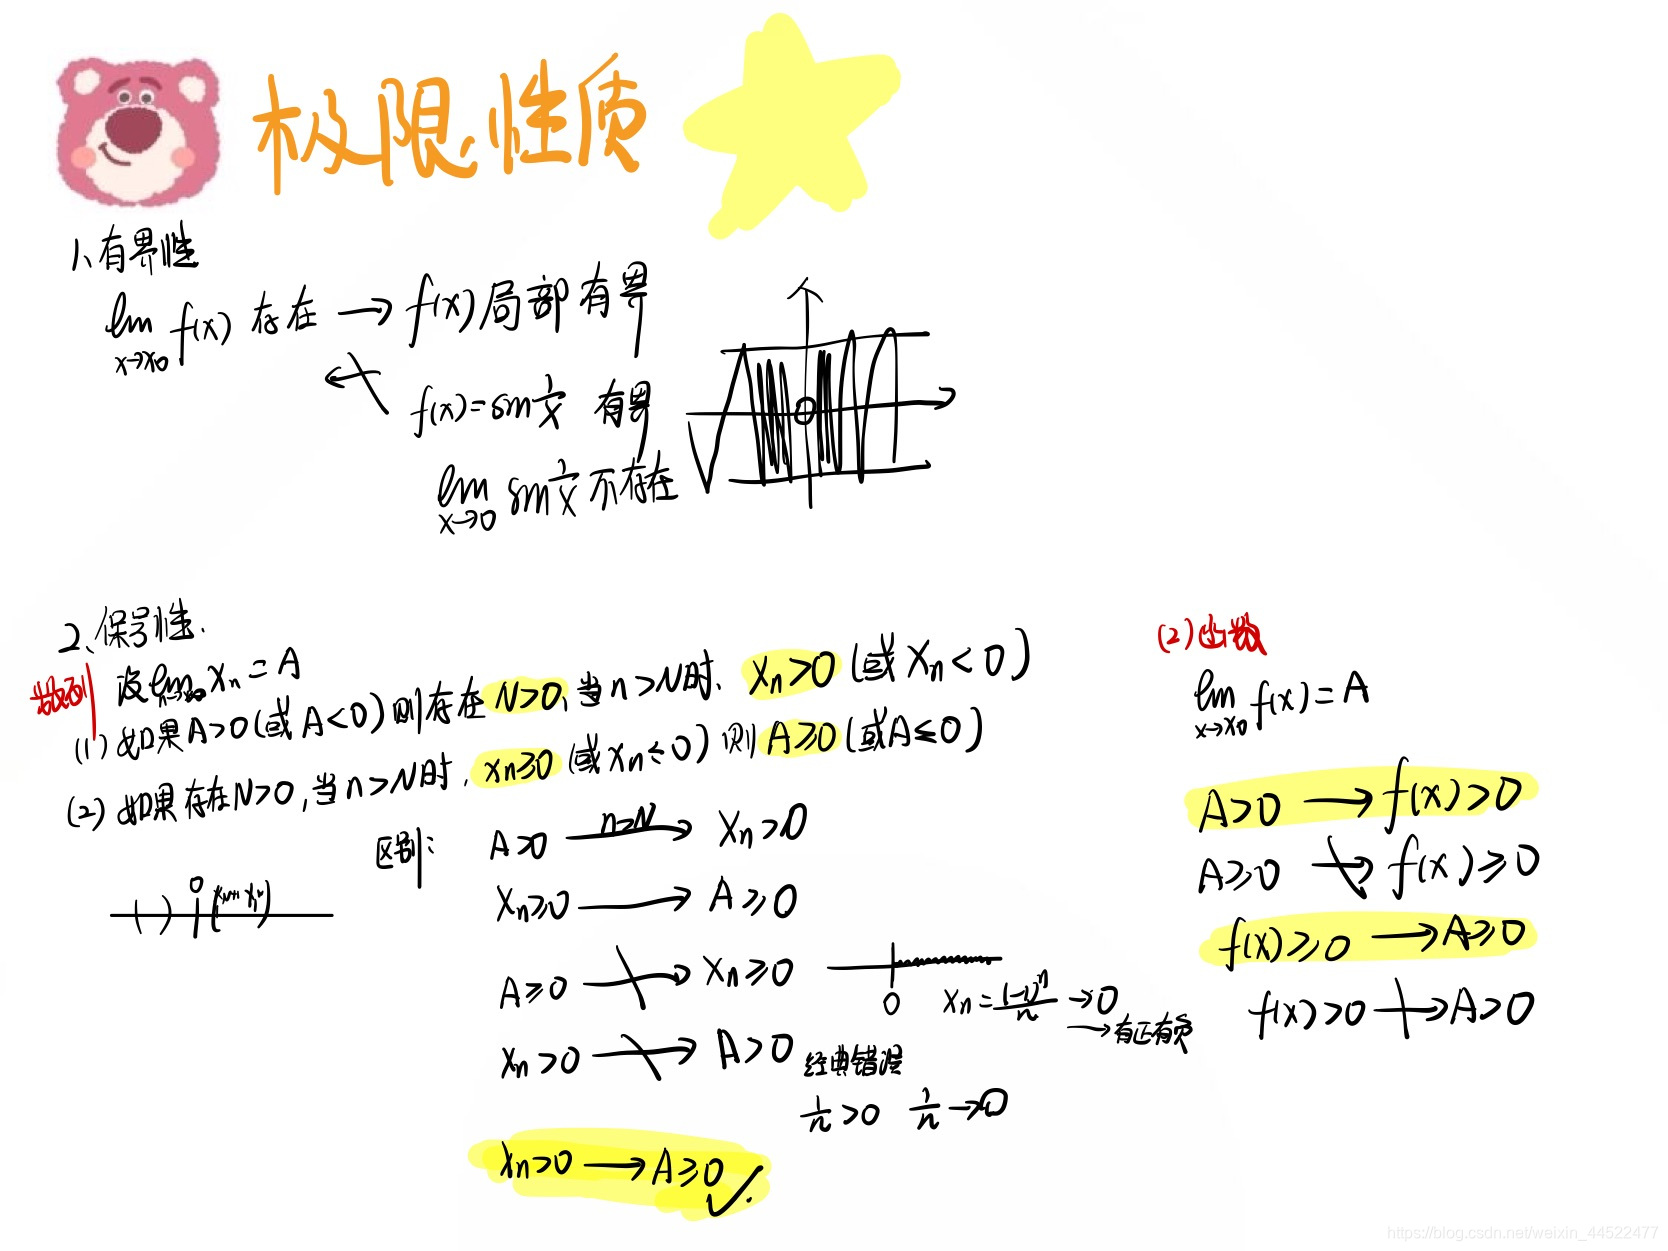 极限性质
1、有界性
lim x→x0 f(x) 存在 → f(x)局部有界
f(x)=sin 1/x 有界
lim x→0 sin 1/x 不存在
2、保号性.
数列 设 lim n→∞ xn = A
(1) 如果A>0(或A<0)则存在N>0,当n>N时, xn>0(或xn<0)
(2) 如果存在N>0,当n>N时, xn≥0(或xn≤0)则A≥0(或A≤0)
区别:
A>0 —n>N→ xn>0
xn≥0 → A≥0
A≥0 ↛ xn≥0
0
xn = (-1)^n/n → 0
→ 有正有负
xn>0 ↛ A>0 经典错误
1/n>0 1/n→0
xn>0 → A≥0 ✓
0
(2)函数
lim x→x0 f(x)=A
A>0 → f(x)>0
A≥0 ↛ f(x)≥0
f(x)≥0 → A≥0
f(x)>0 ↛ A>0
https://blog.csdn.net/weixin_44522477